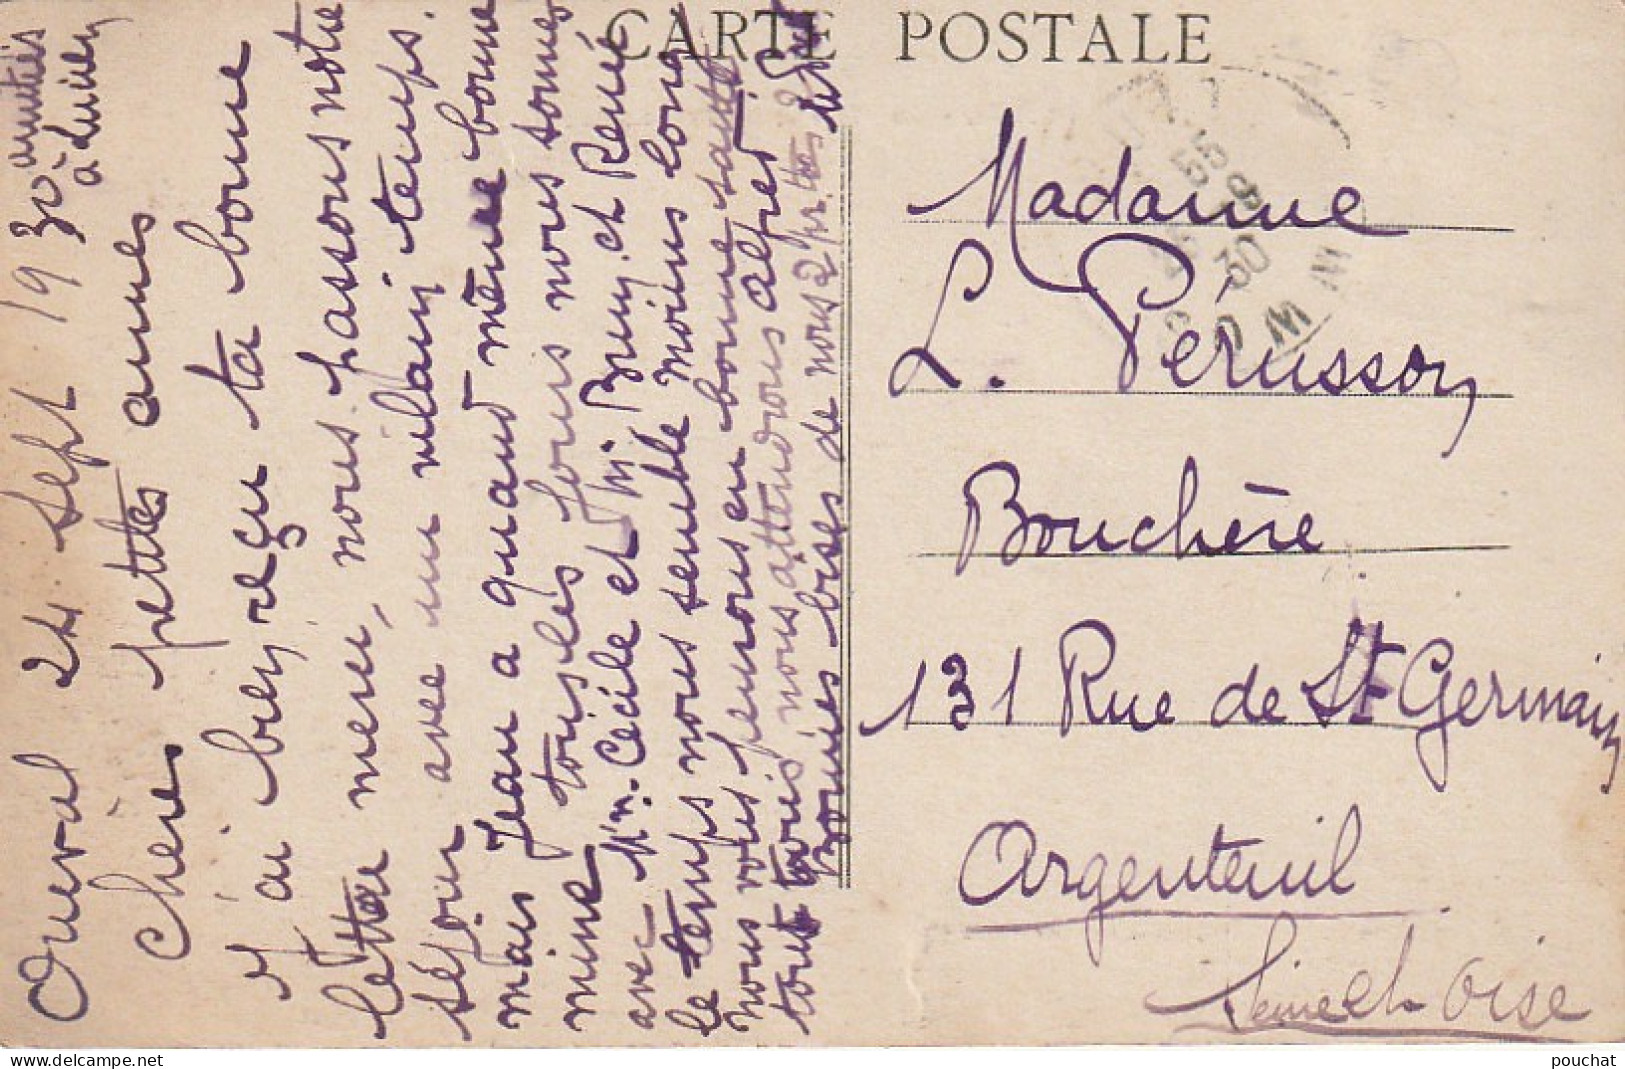 CARTE POSTALE
Orcval 24 Sept 1930
amitiés
à Lucien
Chères petites amies
J'ai bien reçu ta bonne
lettre merci, nous passons notre
séjour avec un vilain temps.
mais Jean a quand même bonne
mine tous les jours nous sommes
avec Mm. Cécile et M. Bruy. et René
le temps nous semble moins long
nous vous pensons en bonne santé
tout nous attendrons alfred
Bonnes bises de nous 2 pr. tes 2
Madame
L. Pérusson
Bouchère
131 Rue de St Germain
Argenteuil
Seine et Oise
30
delcampe.net
pouchat